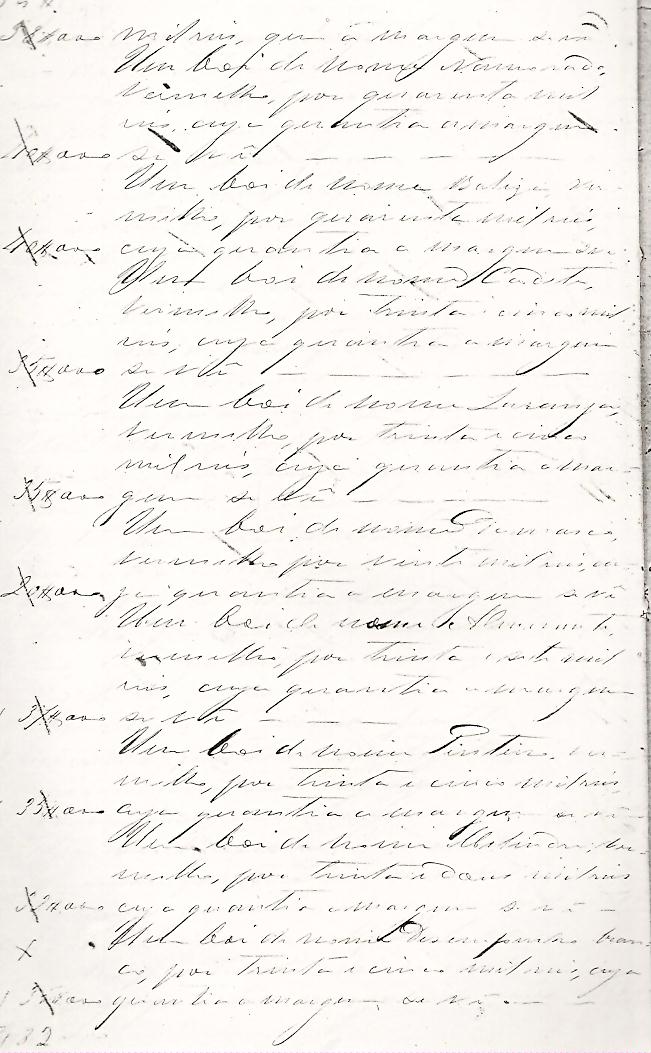 mil reis, que á margem se vê
Um boi de nome Namorado,
Vermelho, por quarenta mil
reis, cuja quantia a margem
40#000 se vê
Um boi de nome Baliza, ver-
melho, por quarenta mil reis,
40#000 cuja quantia a margem se vê
Um boi de nome
vermelho, por trinta e cinco mil
reis, cuja quantia a margem
35#000 se vê
Um boi de nome Laranja,
vermelho, por trinta e cinco
mil reis, cuja quantia a mar-
35#000 gem se vê
Um boi de nome Damasco,
vermelho por vinte mil reis, cu-
20#000 ja quantia a margem se vê
Um boi de nome
vermelho por trinta e sete mil
reis, cuja quantia a margem
37#000 se vê
Um boi de nome ver-
melho, por trinta e cinco mil reis,
35#000 cuja quantia a margem se vê
Um boi de nome ver-
melho, por trinta e dous mil reis
32#000 cuja quantia a margem se vê
X Um boi de nome Desempenho bran-
co, por trinta e cinco mil reis, cuja
35#000 quantia a margem se vê